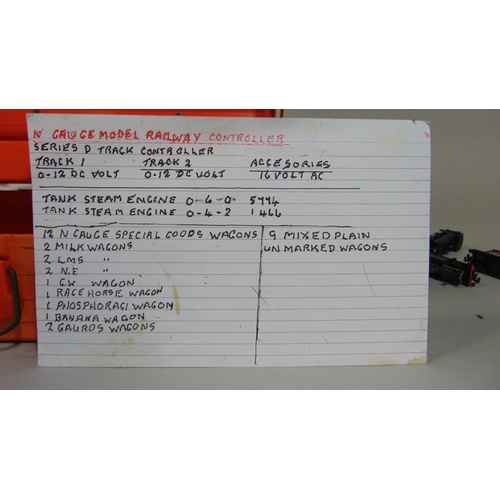 N' GAUGE MODEL RAILWAY CONTROLLER
SERIES D TRACK CONTROLLER
TRACK 1 TRACK 2 ACCESORIES
0-12 DC VOLT 0-12 DC VOLT 16 VOLT AC
TANK STEAM ENGINE 0-6-0
TANK STEAM ENGINE 0-4-2
12 N GAUGE SPECIAL GOODS WAGONS 9 MIXED PLAIN
2 MILK WAGONS UNMARKED WAGONS
2 LMS "
2 N.E "
1 G.W WAGON
1 RACE HORSE WAGON
1 PHOSPHORAGI WAGON
1 BANANA WAGON
2 GAUROS WAGONS